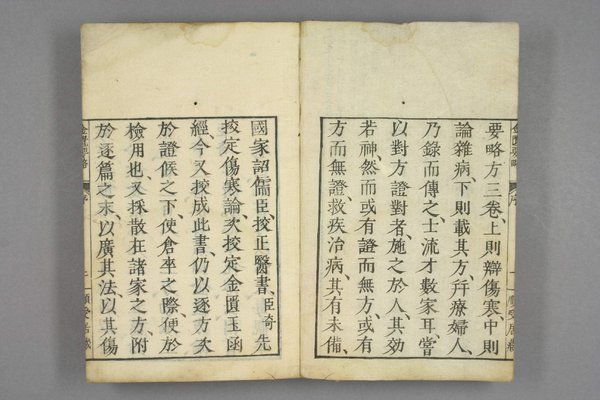 要略方三卷、上則辯傷寒、中則
論雜病、下則載其方、幷療婦人、
乃錄而傳之、士流才數家耳、嘗
以對方證對者、施之於人、其效
若神、然而或有證而無方、或有
方而無證、救疾治病、其有未備、
國家詔儒臣、挍正醫書、臣奇先
挍定傷寒論、次挍定金匱玉函
經、今又挍成此書、仍以逐方次
於證候之下、使倉卒之際、便於
檢用也、又採散在諸家之方、附
於逐篇之末、以廣其法、以其傷
金匱要略 序 二